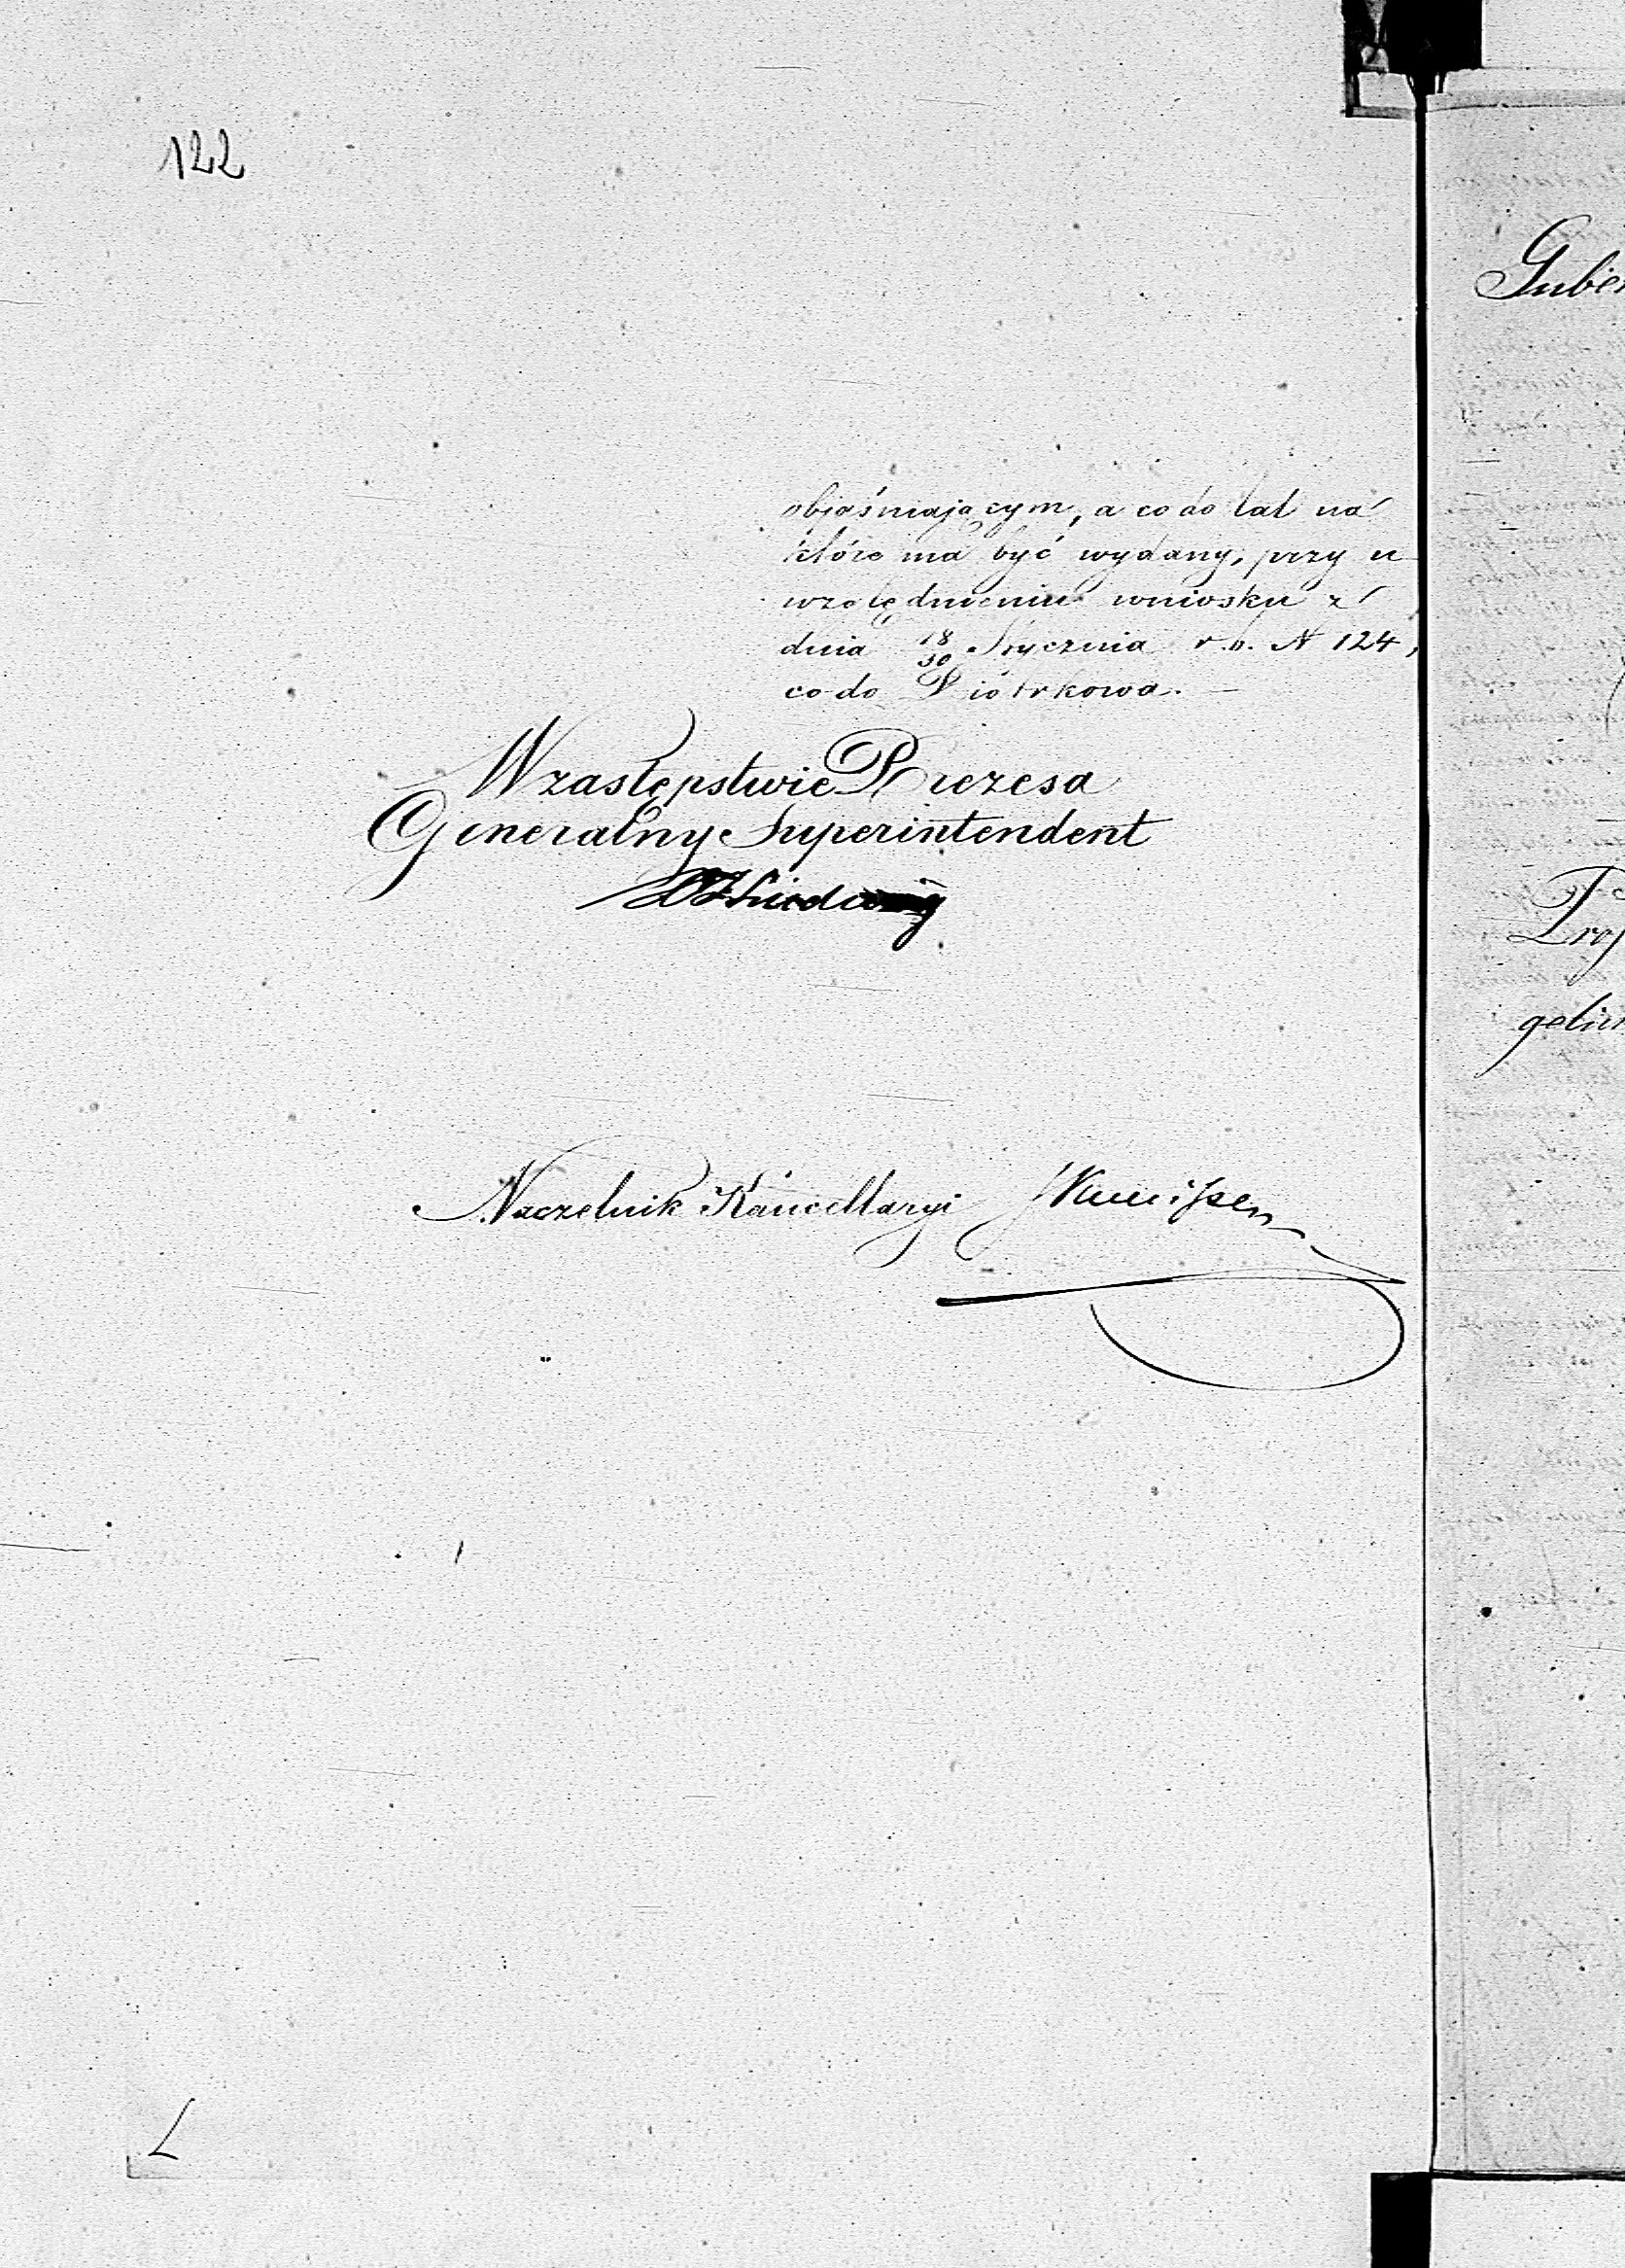 122
objaśniającym, a co do lat na
które ma być wydany, przy u
względnieniu wniosku z
dnia 18/30 Stycznia r.b. N 124,
co do Piotrkowa. —
W zastępstwie Prezesa
Generalny Superintendent
Naczelnik Kancellaryi
L
Guber
gelic